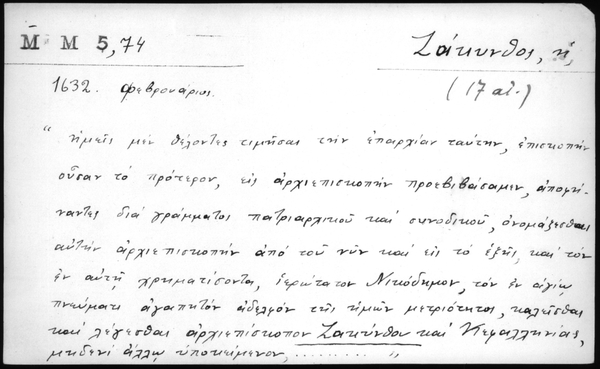 M M 5,74
Ζάκυνθος, ἡ,
1632. Φεβρουάριος.
(17 αἰ.)
"ἡμεῖς μὲν θέλοντες τιμῆσαι τὴν ἐπαρχίαν ταύτην, ἐπισκοπὴν
οὖσαν τὸ πρότερον, εἰς ἀρχιεπισκοπὴν προεβιβάσαμεν, ἀποφή-
ναντες διὰ γράμματος πατριαρχικοῦ καὶ συνοδικοῦ, ὀνομάζεσθαι
αὐτὴν ἀρχιεπισκοπὴν ἀπὸ τοῦ νῦν καὶ εἰς τὸ ἑξῆς, καὶ τὸν
ἐν αὐτῇ χρηματίσοντα, ἱερώτατον Νικόδημον, τὸν ἐν ἁγίῳ
πνεύματι ἀγαπητὸν ἀδελφὸν τῆς ἡμῶν μετριότητος, καλεῖσθαι
καὶ λέγεσθαι ἀρχιεπίσκοπον Ζακύνθου καὶ Κεφαλληνίας,
μηδενὶ ἄλλῳ ὑποκείμενον, .......... "